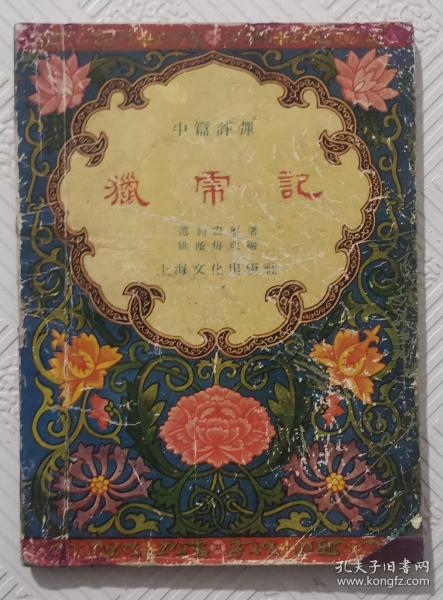 中篇評彈
獵虎記
范鈞宏原著
姚蔭梅改編
上海文化出版社
孔夫子旧书网
www.kongfz.com